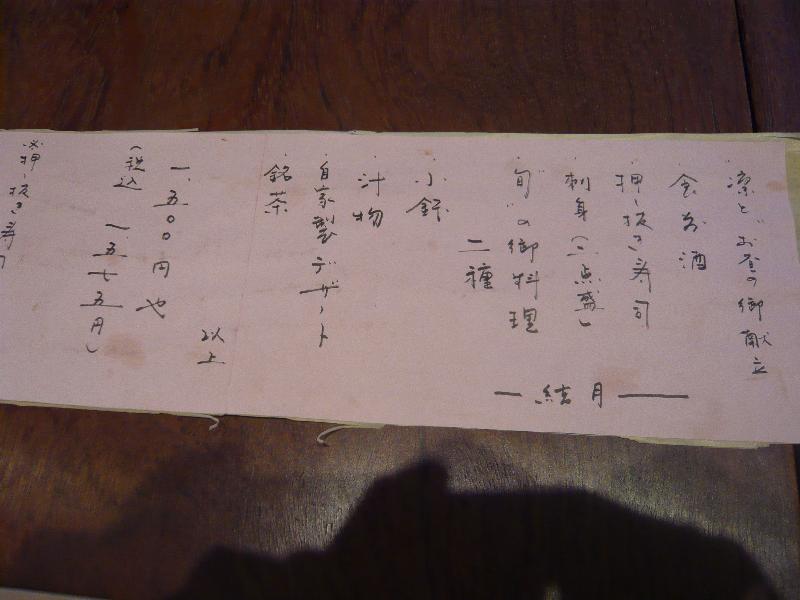 凛と お昼の御献立
・食前酒
・押し抜き寿司
・刺身(三点盛)
・旬の御料理
二種
・小鉢
・汁物
・自家製デザート
・銘茶
以上
一、五〇〇円也
(税込 一、五七五円)
結月
※押し抜き寿司